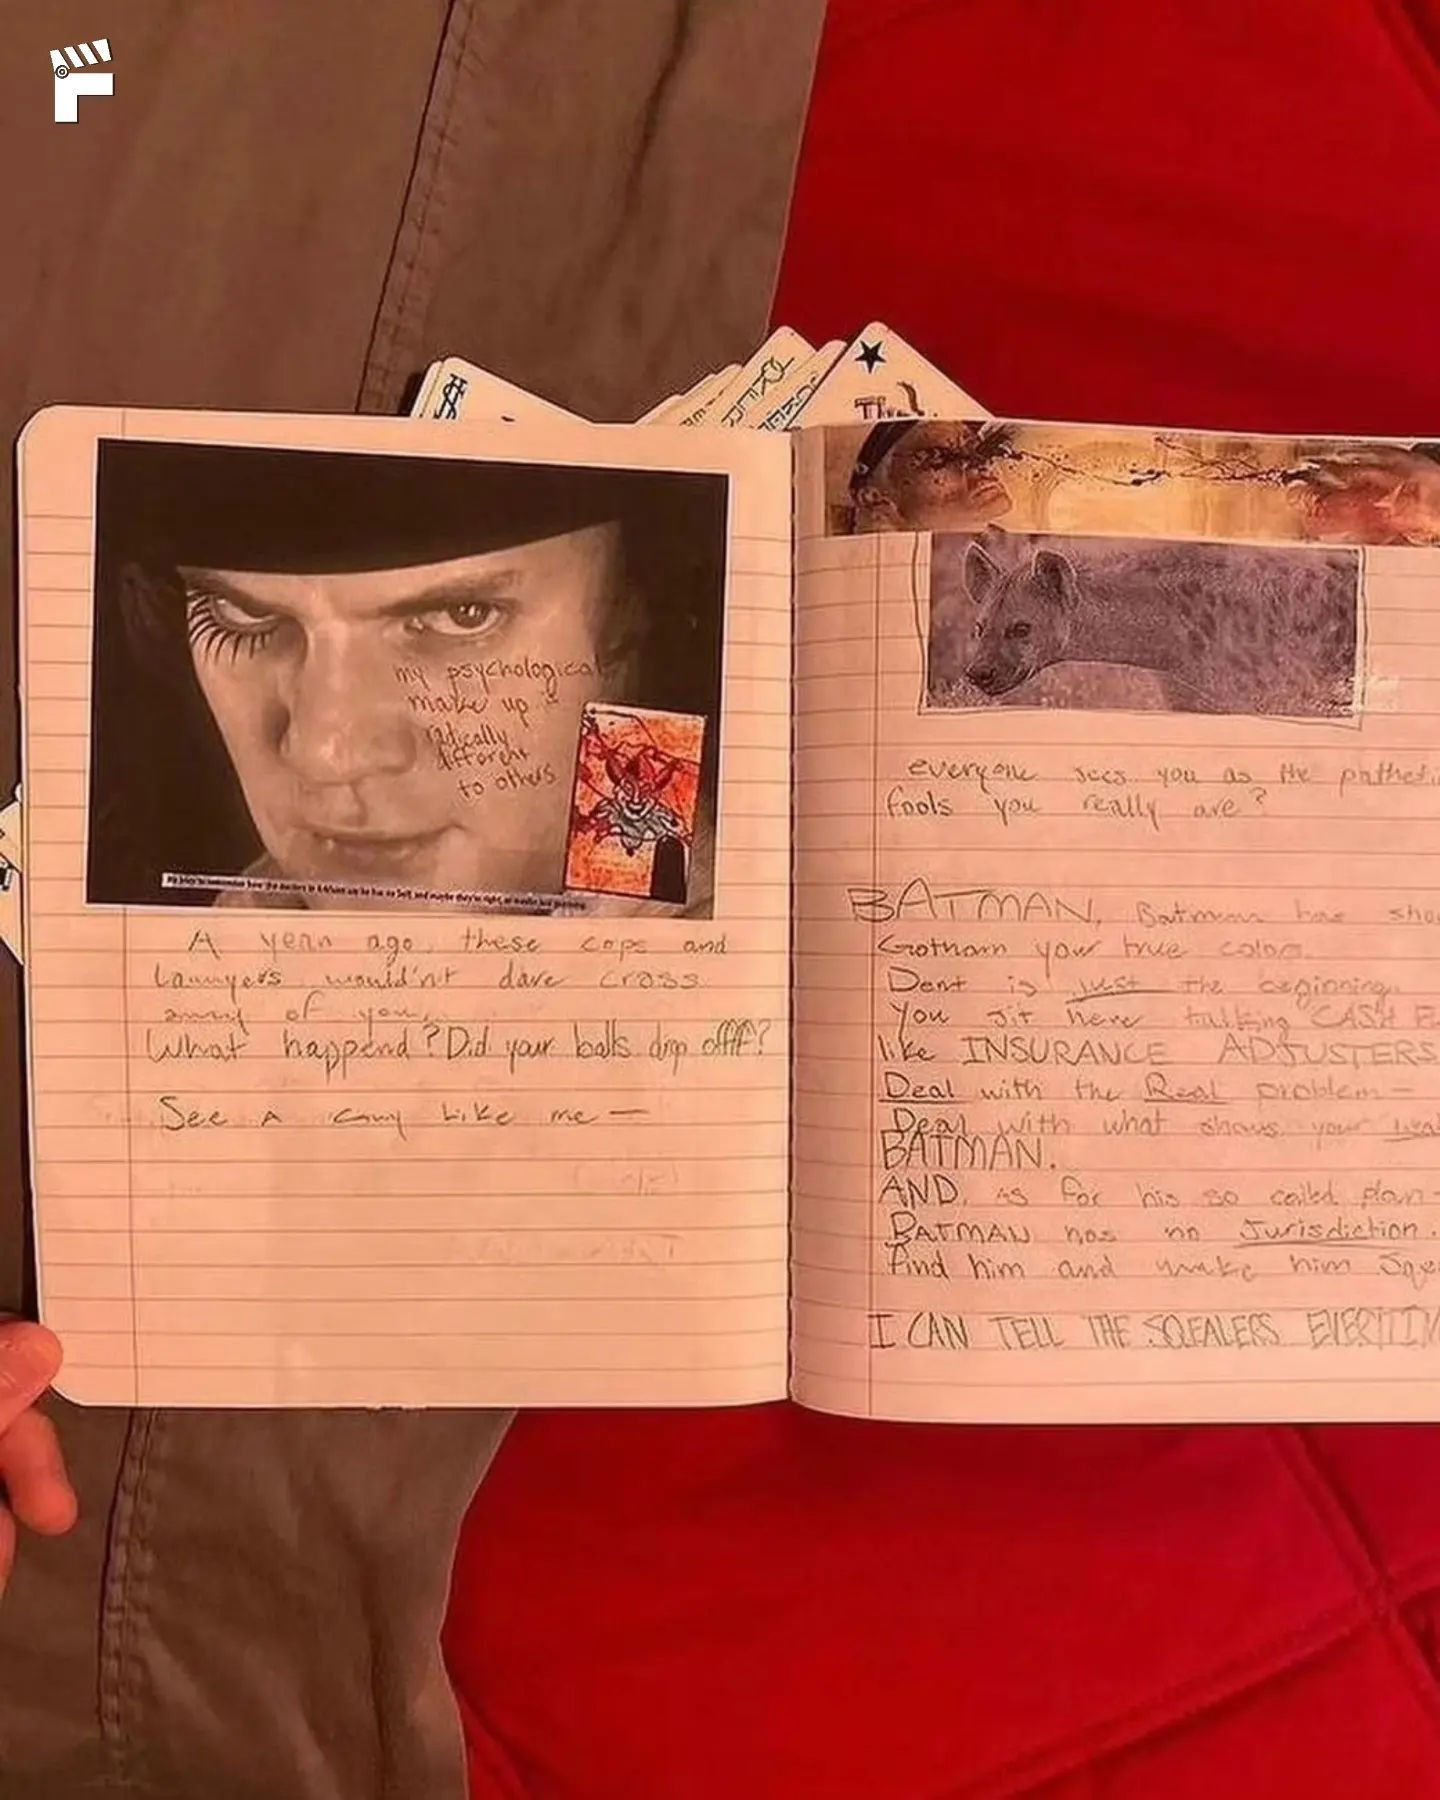 my psychological
make up is
radically
different
to others
A yearn ago, these cops and
Lawyers wouldn't dare cross
any of you,
What happend? Did your balls drop offff?
See A Guy Like me —
The
everyone sees you as the pathetic
fools you really are?
BATMAN, Batman has sho
Gotham your true colors.
Dent is just the beginning.
You sit here talking CASH
like INSURANCE ADJUSTERS
Deal with the Real problem—
Deal with what shows your
BATMAN.
AND, as for his so called plan-
BATMAN has no Jurisdiction.
find him and make him Sque
I CAN TELL THE SQUEALERS